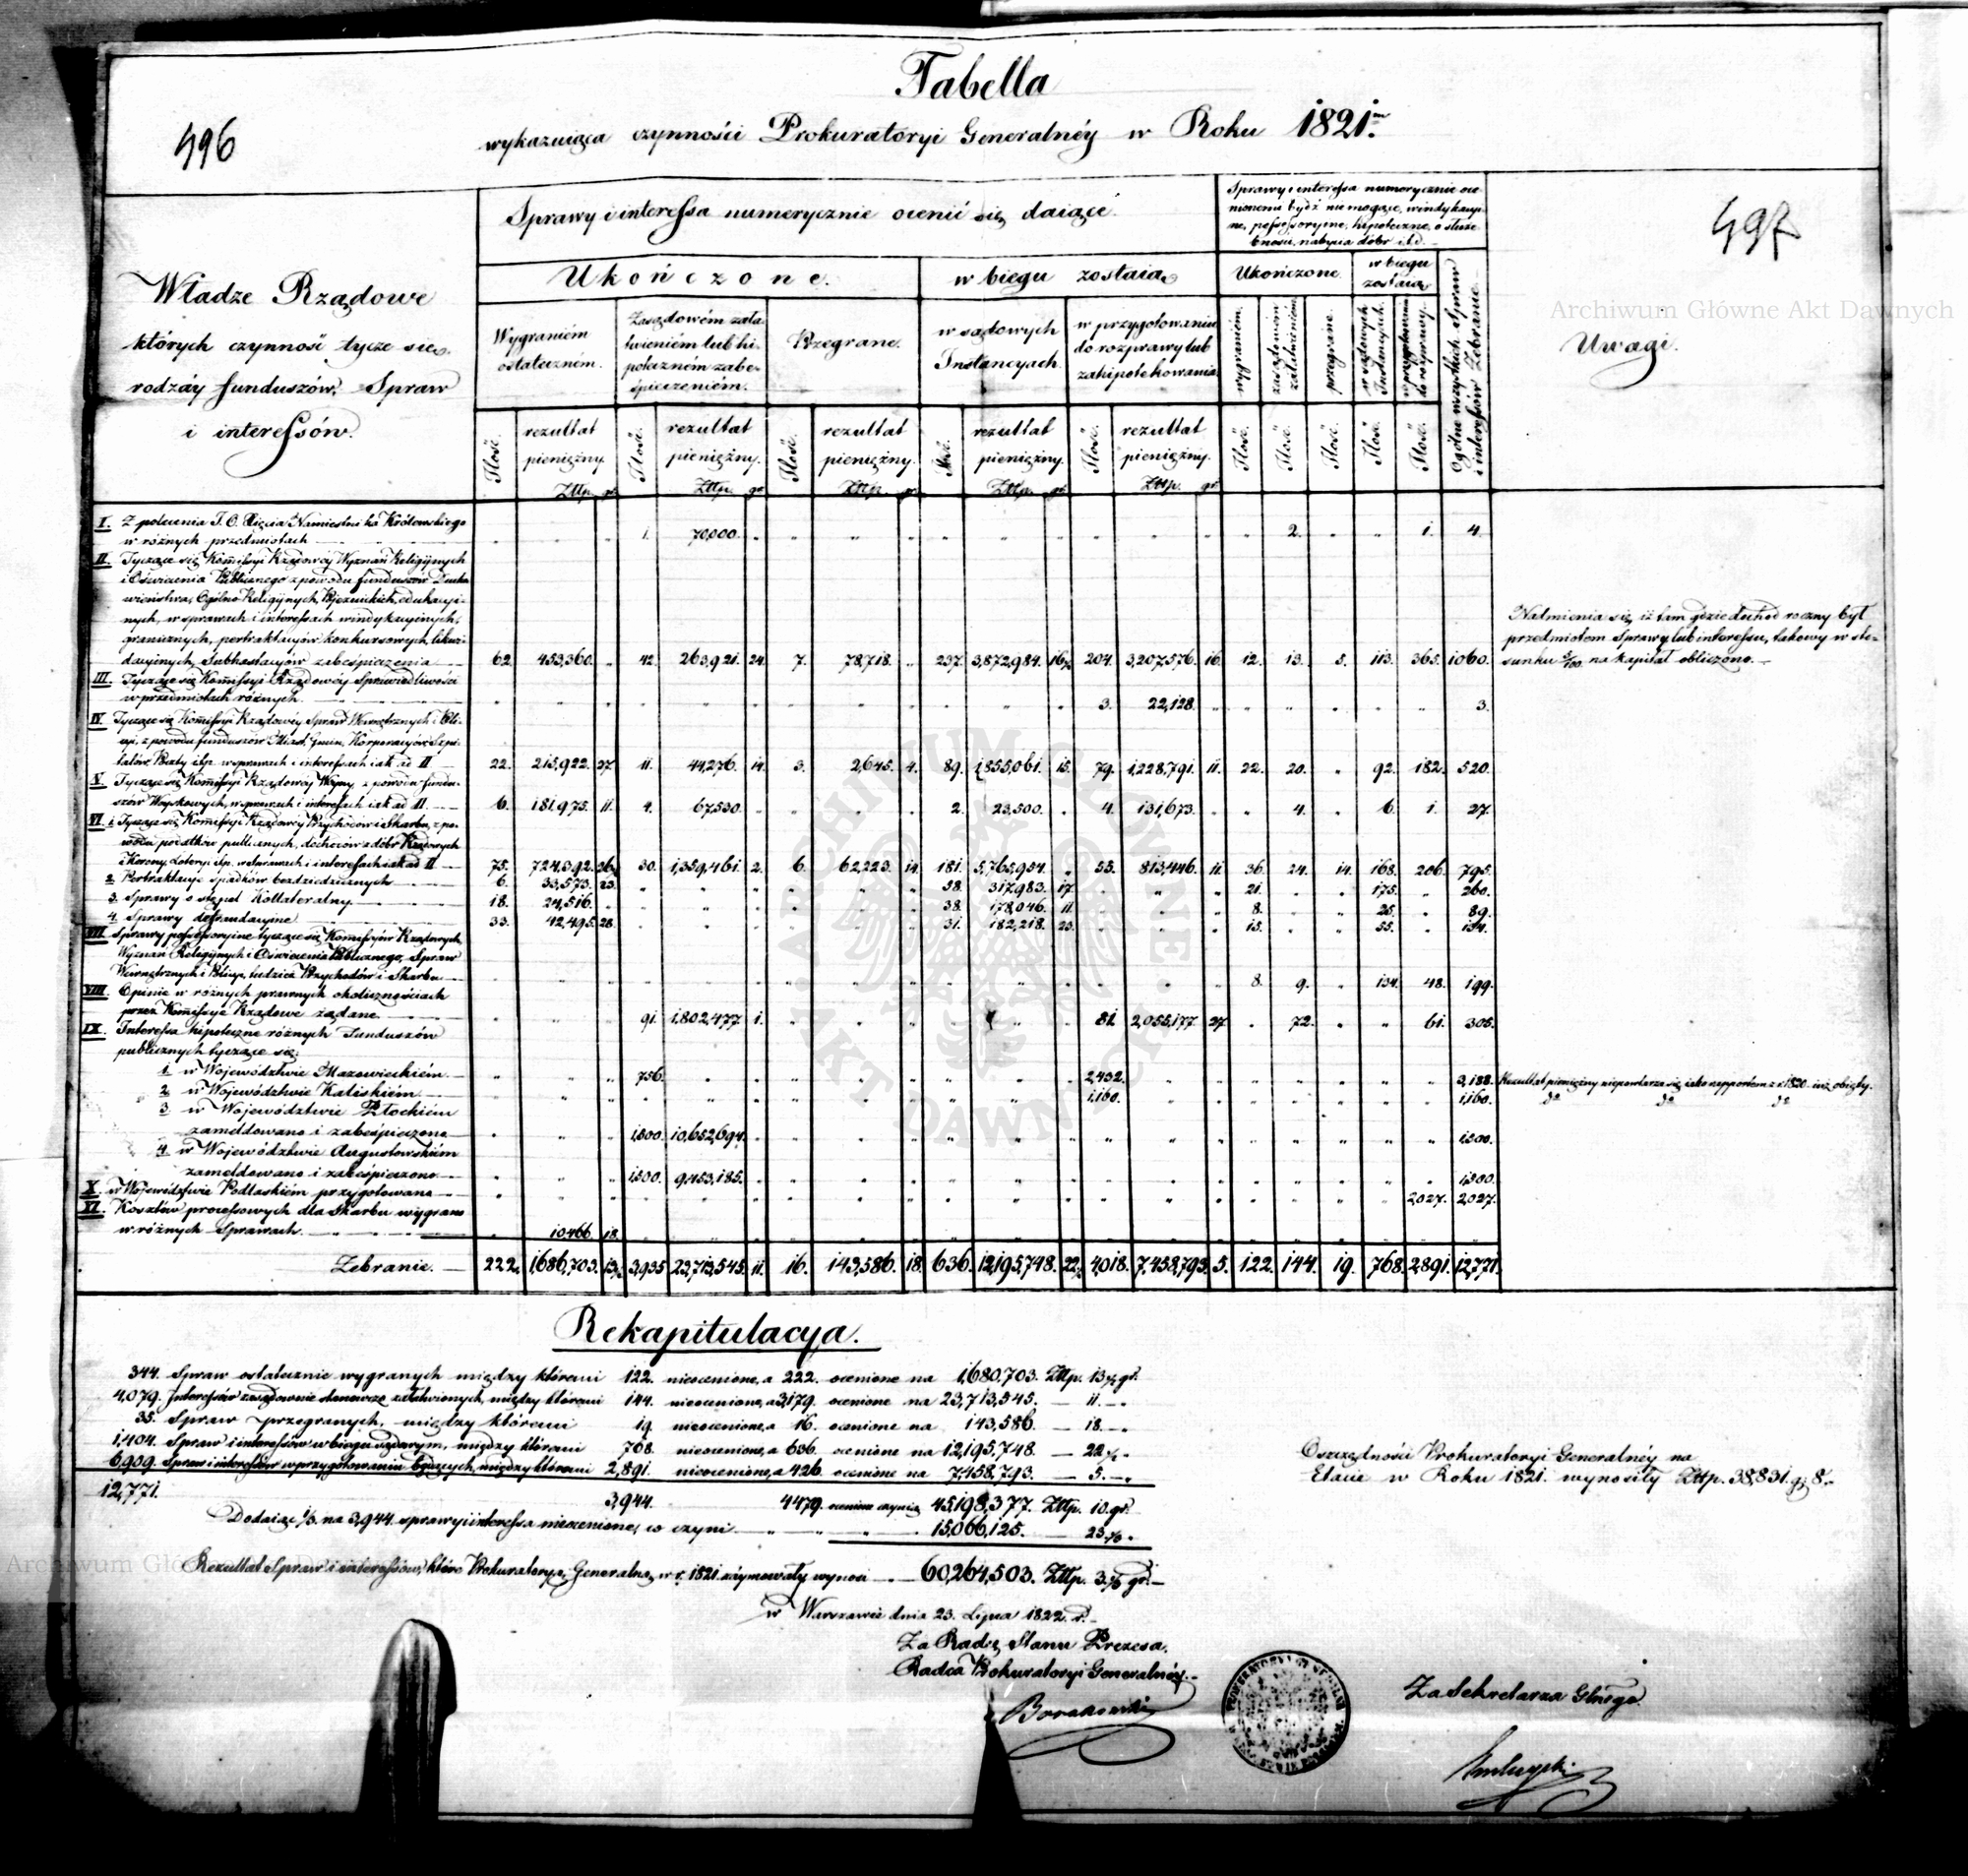 Tabella
wykazuiąca czynności Prokuratoryi Generalnéy w Roku 1821.
496
497
Archiwum Główne Akt Dawnych
Władze Rządowe
których czynność tycze się
rodzáy funduszów, Spraw
i interessów.
Sprawy i interessa numerycznie ocenić się daiące.
Ukończone.
w biegu zostaią
Wygraniem
ostatecznem.
Zasądowém zała-
twieniem lub hi-
potecznem zabe-
śpieczeniem.
Przegrane.
w sądowych
Instancyach
w przygotowaniu
do rozprawy lub
zahipotekowania
Sprawy i interessa numerycznie oce-
nionemi bydź nie mogące, windykacyi-
ne, possessoryine, hipoteczne, o służe-
bności, nabycia dóbr i t.d.
Ukończone
w biegu
zostaią
wygraniem.
zasądowém załatwieniem
przegrane.
w sądowych Instancyach
w przygotowaniu do rozprawy
Ogólne wszystkich Spraw i interessów Zebranie.
Uwagi.
Ilość. rezultat pieniężny. Złtp. gr. Ilość. rezultat pieniężny. Złtp. gr. Ilość. rezultat pieniężny. Złtp. gr. Ilość. rezultat pieniężny. Złtp. gr. Ilość. rezultat pieniężny. Złtp. gr. Ilość. Ilość. Ilość. Ilość. Ilość.
I. Z polecenia J. O. Xięcia Namiestnika Królewskiego
w różnych przedmiotach 1. 70,000. 2. 1. 4.
II. Tyczące się Kommissyi Rządowéy Wyznań Religiynych
i Oświecenia Publicznego z powodu funduszów Ducho-
wieństwa, Ogólno Religiynych, edukacyi-
nych, w sprawach i interessach windykacyinych,
granicznych, pertraktacyów konkursowych, likwi-
dacyinych, Subhastacyów zabeśpieczenia 62. 453,360. 42. 263,921. 24. 7. 78,718. 237. 3,872,984. 16½ 204. 3,207,576. 16. 12. 13. 5. 113. 365. 1060.
Nadmienia się, iż tam gdzie dochód roczny był
przedmiotem Sprawy lub interessu, takowy w sto-
sunku 5/100 na kapitał obliczono.
III. Tyczące się Kommissyi Rządowéy Sprawiedliwości
w przedmiotach różnych 3. 22,128. 3.
IV. Tyczące się Kommissyi Rządowéy Spraw Wewnętrznych i Poli-
cyi, z powodu funduszów Miast, Gmin, Korporacyów, Szpi-
talów, Poczty itp. w sprawach i interessach iak ad II 22. 215,922. 27. 11. 44,276. 14. 3. 2,645. 4. 89. 1,855,061. 15. 79. 1,228,791. 11. 22. 20. 92. 182. 520.
V. Tyczące się Kommissyi Rządowéy Woyny, z powodu fundu-
szów Woyskowych, w sprawach i interessach iak ad II. 6. 181,975. 11. 4. 67,530. 2. 23,500. 4. 131,673. 4. 6. 1. 27.
VI. 1. Tyczące się Kommissyi Rządowéy Przychodów i Skarbu, z po-
wodu podatków publicznych, dochodów z dóbr Rządowych
i Korony, Loteryi itp. w sprawach i interessach iak ad II 75. 724,392. 26½ 30. 1,359,461. 2. 6. 62,223. 14. 181. 5,765,954. 55. 813,446. 11. 36. 24. 14. 168. 206. 795.
2. Pertraktacye spadków bezdziedzicznych 6. 33,573. 23. 58. 317,983. 17. 21. 175. 260.
3. Sprawy o stępel Kollateralny 18. 24,516. 38. 178,046. 11. 8. 25. 89.
4. Sprawy defraudacyine 33. 42,495. 28. 31. 182,218. 23. 15. 55. 134.
VII. Sprawy possessoryine tyczące się Kommissyów Rządowych,
Wyznań Religiynych i Oświecenia Publicznego, Spraw
Wewnętrznych i Policyi, tudzież Przychodów i Skarbu 8. 9. 134. 48. 199.
VIII. Opinie w różnych prawnych okolicznościach
przez Kommissye Rządowe żądane 91. 1,802,477. 1. 81. 2,055,177. 27. 72. 61. 305.
IX. Interessa hipoteczne różnych Funduszów
publicznych tyczące się:
1. w Województwie Mazowieckiém 756. 2,432. 3,188. Rezultat pieniężny niepowtarza się, iako rapportem z r. 1820. iuż obięty.
2. w Województwie Kaliskiém 1,160. 1,160. do do do
3. w Województwie Płockiém
zameldowano i zabeśpieczono 1,500. 10,652,694. 1,500.
4. w Województwie Augustowskiém
zameldowano i zabeśpieczono 1,500. 9,453,185. 1,500.
X. w Województwie Podlaskiém przygotowano 2,027. 2,027.
XI. Kosztów processowych dla Skarbu wygrano
w różnych Sprawach 10,466. 18.
Zebranie. 222. 1,686,703. 13½ 3,935 23,713,545. 11. 16. 143,586. 18. 636. 12,195,748. 22½ 4,018. 7,458,793. 5. 122. 144. 19. 768. 2,891. 12,771.
Rekapitulacya.
344. Spraw ostatecznie wygranych między któremi 122. nieocenione, a 222. ocenione na 1,680,703. Złtp. 13½ gr.
4,079. Interessów zasądownie stanowczo załatwionych, między któremi 144. nieocenione, a 3,179. ocenione na 23,713,545. — 11. —
35. Spraw przegranych, między któremi 19. nieocenione, a 16. ocenione na 143,586. — 18. —
1,404. Spraw i interessów w biegu sądowym, między któremi 768. nieocenione, a 636. ocenione na 12,195,748. — 22½.
6,909. Spraw i interessów w przygotowaniu będących, między któremi 2,891. nieocenione, a 426. ocenione na 7,458,793. — 5. —
12,771. 3,944. 4479. ocenione czynią 45,198,377. Złtp. 10. gr.
Dodaiąc 1/3. na 3,944. sprawy i interessa nieocenione, co czyni 15,066,125. — 23
Rezultat Spraw i interessów, które Prokuratorya Generalna w r. 1821. zaymowały wynosi 60,264,503. Złtp. 3 gr.
Oszczędności Prokuratoryi Generalnéy na
Etacie w Roku 1821. wynosiły Złtp. 38,831. gr 8.
w Warszawie dnia 23. Lipca 1822. r.
Za Radcę Stanu Prezesa.
Radca Prokuratoryi Generalnéy.
Za Sekretarza Glnego
ARCHIWUM GŁÓWNE
AKT DAWNYCH
Archiwum Główne Akt Dawnych